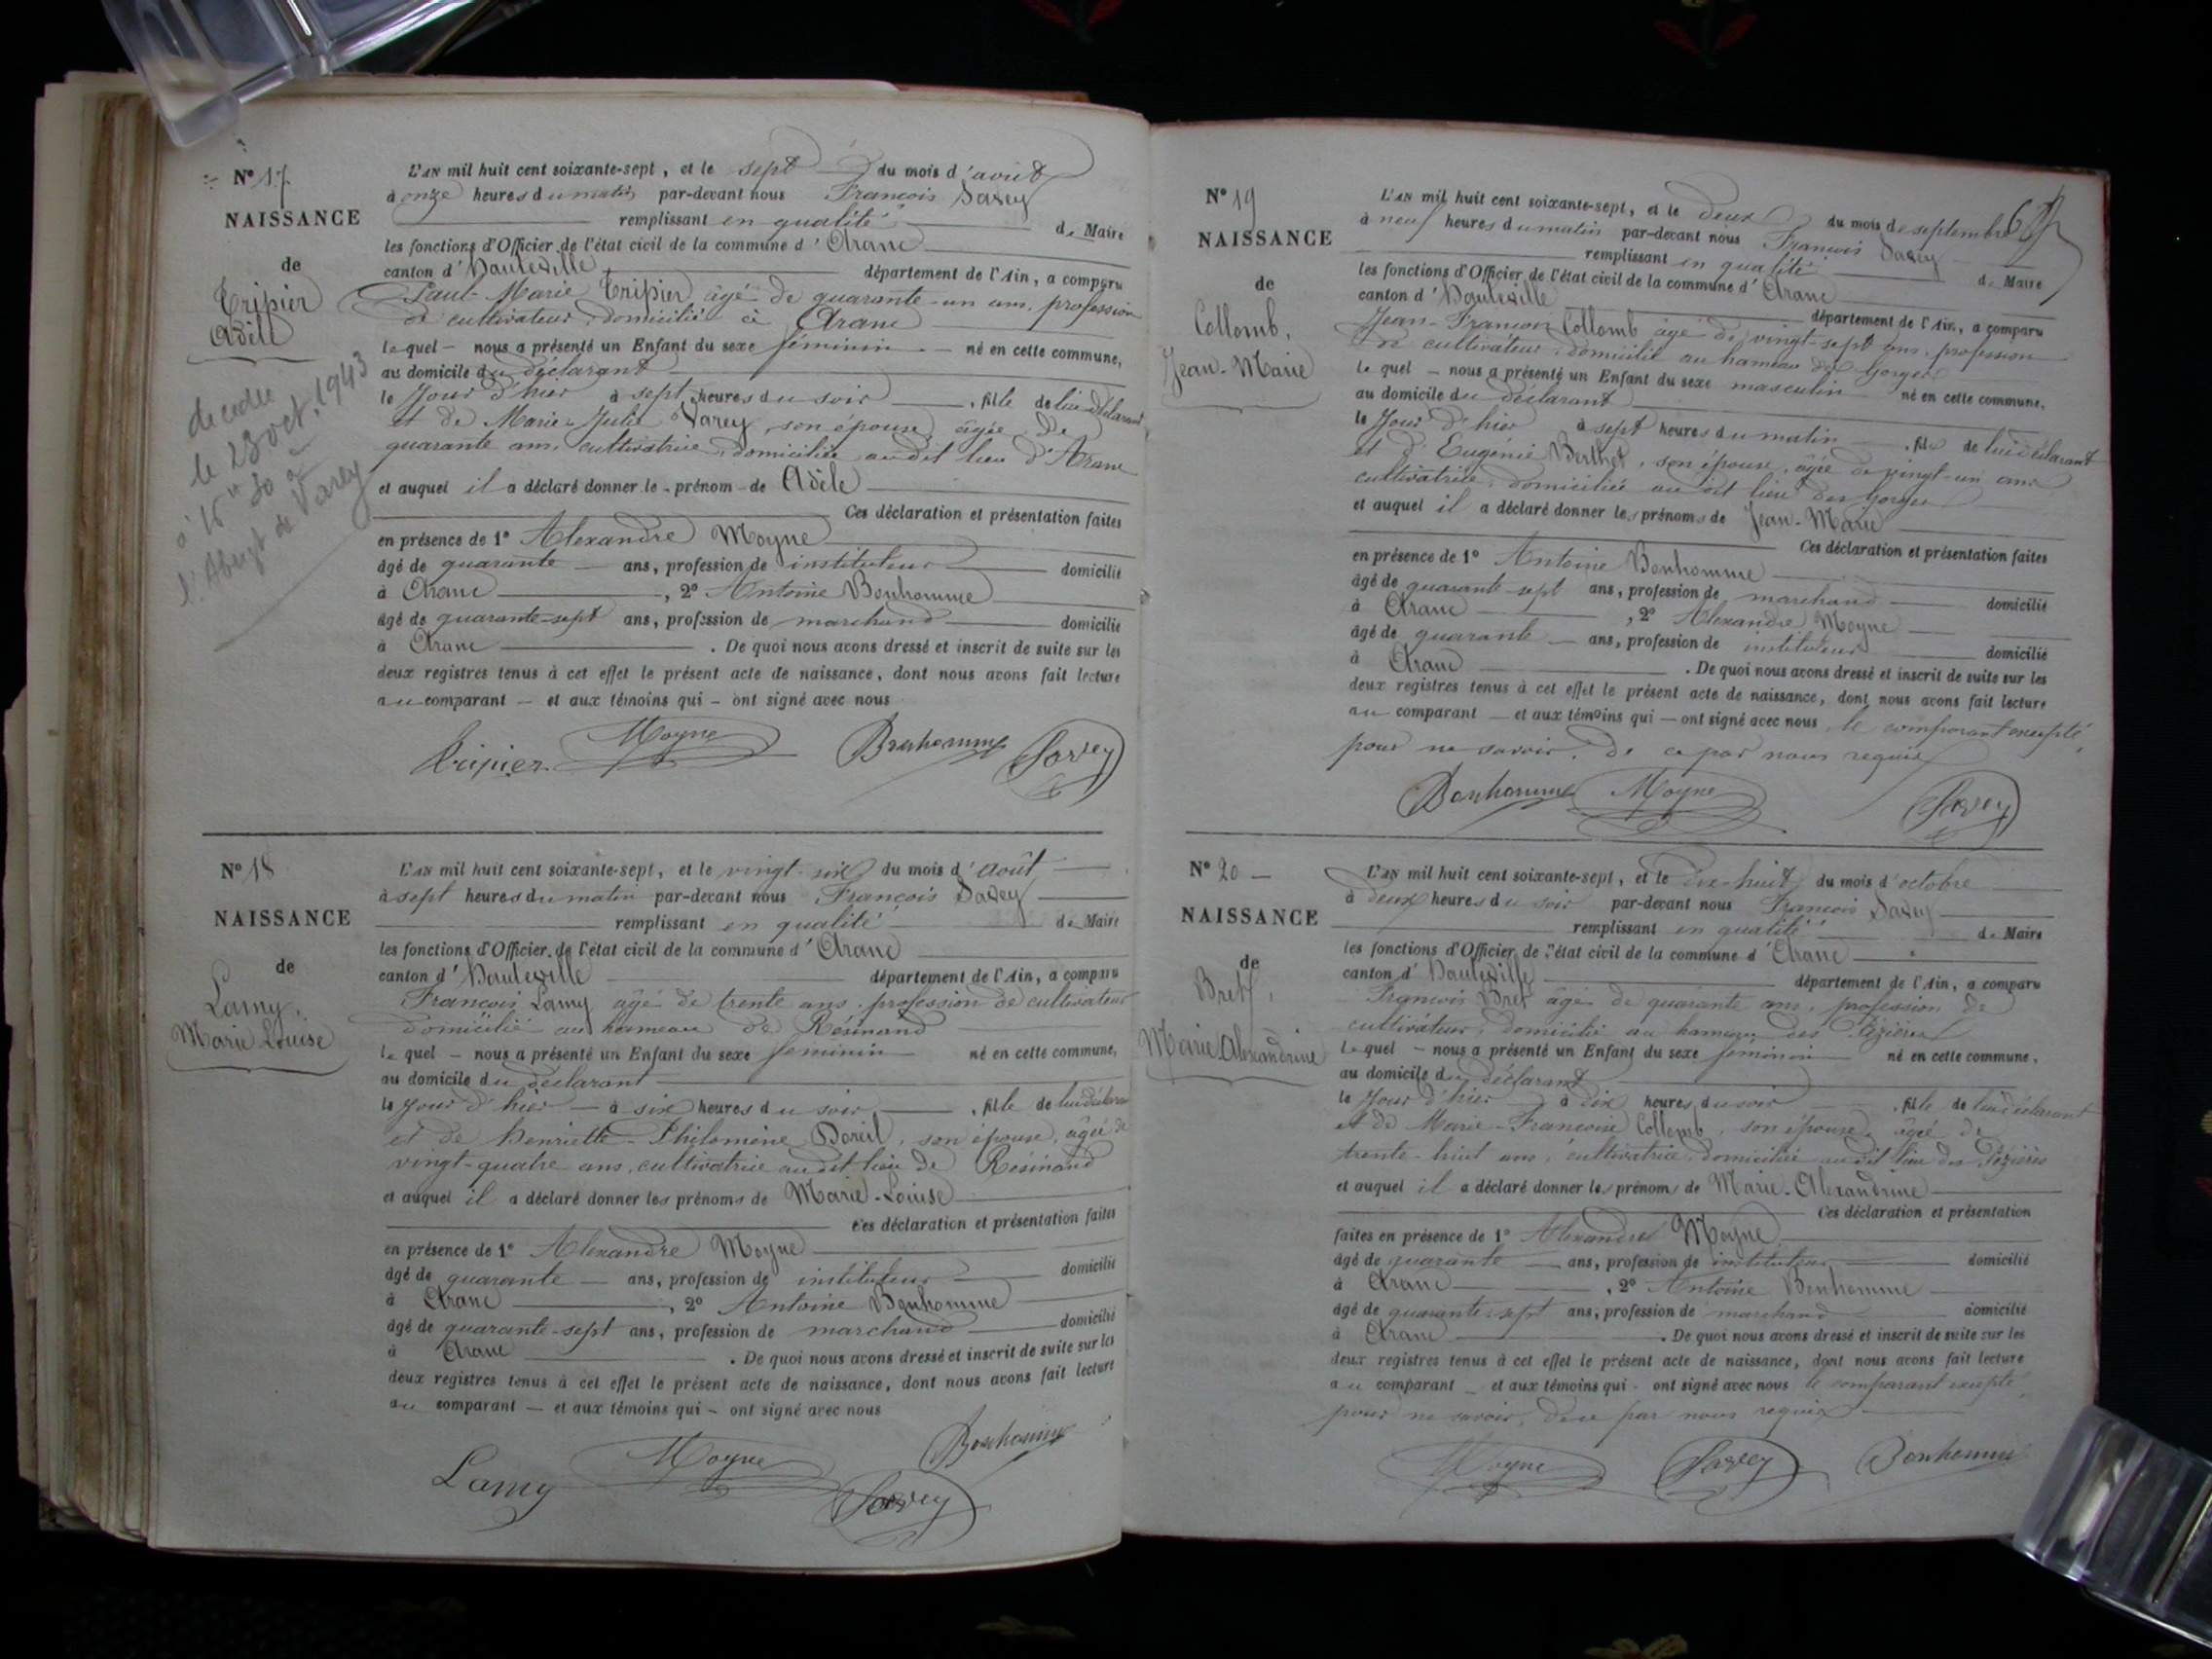 N° 17
NAISSANCE
de
Tripier
Adèle
décédée
le 28 oct. 1943
à 15 h 30 à
l'Abergt de Varey
L'AN mil huit cent soixante-sept, et le sept du mois d'août
à onze heures du matin par-devant nous François Savey
remplissant en qualité de Maire
les fonctions d'Officier de l'état civil de la commune d'Aranc
canton d'Hauteville département de l'Ain, a comparu
Paul-Marie Tripier âgé de quarante-un ans, profession
de cultivateur, domicilié à Aranc
lequel – nous a présenté un Enfant du sexe féminin – né en cette commune,
au domicile du déclarant
le Jour d'hier à sept heures du soir , fille de lui déclarant
et de Marie-Julie Varey, son épouse, âgée de
quarante ans, cultivatrice, domiciliée au dit lieu d'Aranc
et auquel il a déclaré donner le – prénom – de Adèle
Ces déclaration et présentation faites
en présence de 1° Alexandre Moyne
âgé de quarante – ans, profession de instituteur domicilié
à Aranc , 2° Antoine Bonhomme
âgé de quarante-sept ans, profession de marchand domicilié
à Aranc . De quoi nous avons dressé et inscrit de suite sur les
deux registres tenus à cet effet le présent acte de naissance, dont nous avons fait lecture
au comparant – et aux témoins qui – ont signé avec nous
Tripier Moyne Bonhomme Savey
N° 18
NAISSANCE
de
Lamy,
Marie Louise
L'AN mil huit cent soixante-sept, et le vingt-six du mois d'Août
à sept heures du matin par-devant nous François Savey
remplissant en qualité de Maire
les fonctions d'Officier de l'état civil de la commune d'Aranc
canton d'Hauteville département de l'Ain, a comparu
François Lamy âgé de trente ans, profession de cultivateur
domicilié au hameau de Résinand
lequel – nous a présenté un Enfant du sexe féminin né en cette commune,
au domicile du déclarant
le Jour d'hier – à six heures du soir , fille de lui déclarant
et de Henriette-Philomène Doreil, son épouse, âgée de
vingt-quatre ans, cultivatrice au dit lieu de Résinand
et auquel il a déclaré donner les prénoms de Marie-Louise
Ces déclaration et présentation faites
en présence de 1° Alexandre Moyne
âgé de quarante – ans, profession de instituteur domicilié
à Aranc , 2° Antoine Bonhomme
âgé de quarante-sept ans, profession de marchand domicilié
à Aranc . De quoi nous avons dressé et inscrit de suite sur les
deux registres tenus à cet effet le présent acte de naissance, dont nous avons fait lecture
au comparant – et aux témoins qui – ont signé avec nous
Bonhomme
Lamy Moyne Savey
N° 19
NAISSANCE
de
Collomb,
Jean-Marie
L'AN mil huit cent soixante-sept, et le deux du mois de septembre
à neuf heures du matin par-devant nous François Savey
remplissant en qualité de Maire
les fonctions d'Officier de l'état civil de la commune d'Aranc
canton d'Hauteville département de l'Ain, a comparu
Jean-François Collomb âgé de vingt-sept ans, profession
de cultivateur, domicilié au hameau des Gorges
lequel – nous a présenté un Enfant du sexe masculin né en cette commune,
au domicile du déclarant
le Jour d'hier à sept heures du matin , fils de lui déclarant
et d'Eugénie Berthet, son épouse, âgée de vingt-un ans
cultivatrice, domiciliée au dit lieu des Gorges
et auquel il a déclaré donner les prénoms de Jean-Marie
Ces déclaration et présentation faites
en présence de 1° Antoine Bonhomme
âgé de quarante-sept ans, profession de marchand domicilié
à Aranc , 2° Alexandre Moyne
âgé de quarante – ans, profession de instituteur domicilié
à Aranc . De quoi nous avons dressé et inscrit de suite sur les
deux registres tenus à cet effet le présent acte de naissance, dont nous avons fait lecture
au comparant – et aux témoins qui – ont signé avec nous le comparant excepté,
pour ne savoir, de ce par nous requis
Bonhomme Moyne Savey
N° 20 –
NAISSANCE
de
Bret,
Marie Alexandrine
L'AN mil huit cent soixante-sept, et le dix-huit du mois d'octobre
à deux heures du soir par-devant nous François Savey
remplissant en qualité de Maire
les fonctions d'Officier de l'état civil de la commune d'Aranc
canton d'Hauteville département de l'Ain, a comparu
François Bret âgé de quarante ans, profession de
cultivateur, domicilié au hameau des Pézières
lequel – nous a présenté un Enfant du sexe féminin né en cette commune,
au domicile du déclarant
le Jour d'hier à dix heures du soir , fille de lui déclarant
et de Marie-Françoise Collomb, son épouse, âgée de
trente-huit ans, cultivatrice, domiciliée au dit lieu des Pézières
et auquel il a déclaré donner les prénoms de Marie-Alexandrine
Ces déclaration et présentation
faites en présence de 1° Alexandre Moyne
âgé de quarante – ans, profession de instituteur domicilié
à Aranc , 2° Antoine Bonhomme
âgé de quarante-sept ans, profession de marchand domicilié
à Aranc . De quoi nous avons dressé et inscrit de suite sur les
deux registres tenus à cet effet le présent acte de naissance, dont nous avons fait lecture
au comparant – et aux témoins qui – ont signé avec nous le comparant excepté,
pour ne savoir, de ce par nous requis
Moyne Savey Bonhomme